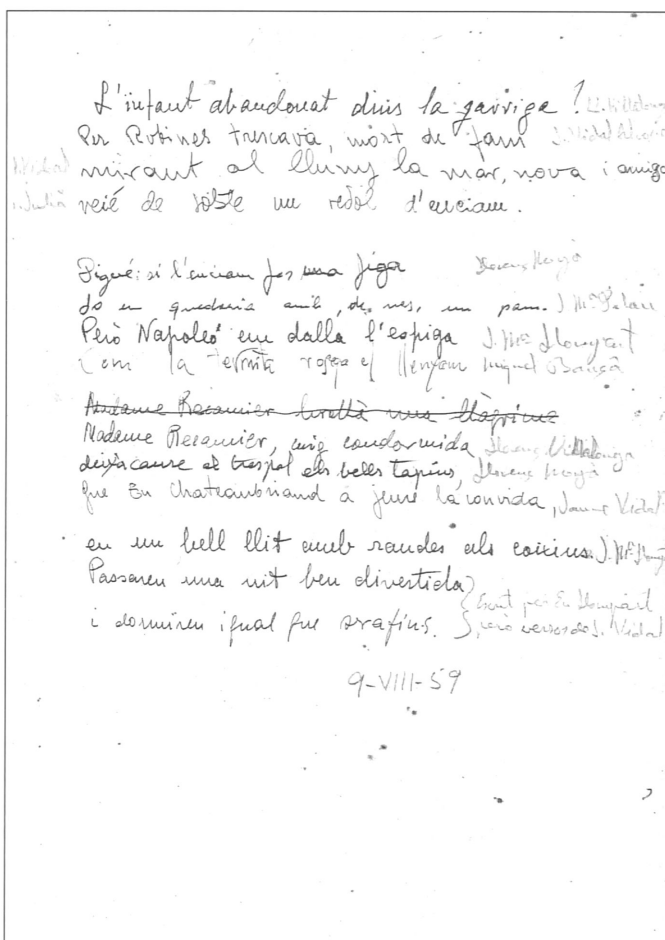 L'infant abandonat dins la garriga! Ll. Villalonga
Per Robines trescava, mort de fam J. Vidal
mirant al lluny la mar, nova i amiga
veié de sobte un redol d'enciam.
Digué: si l'enciam fos una figa Llorenç Moyà
Jo en quedaria amb, de més, un pam. J. Mª Palau
Però Napoleó em dalla l'espiga J. Mª Llompart
Com la termita rosega el llenyam Miquel Bauçà
Madame Recamier
Madame Recamier, mig condormida Llorenç Villalonga
deixà caure al trespol els bells tapins, Llorenç Moyà
que En Chateaubriand a jeure la convida, Jaume Vidal
en un bell llit amb randes als coixins. J. Mª
Passaren una nit ben divertida
i dormiren igual que serafins. Escrit per En Llompart però versos de J. Vidal
9-VIII-59